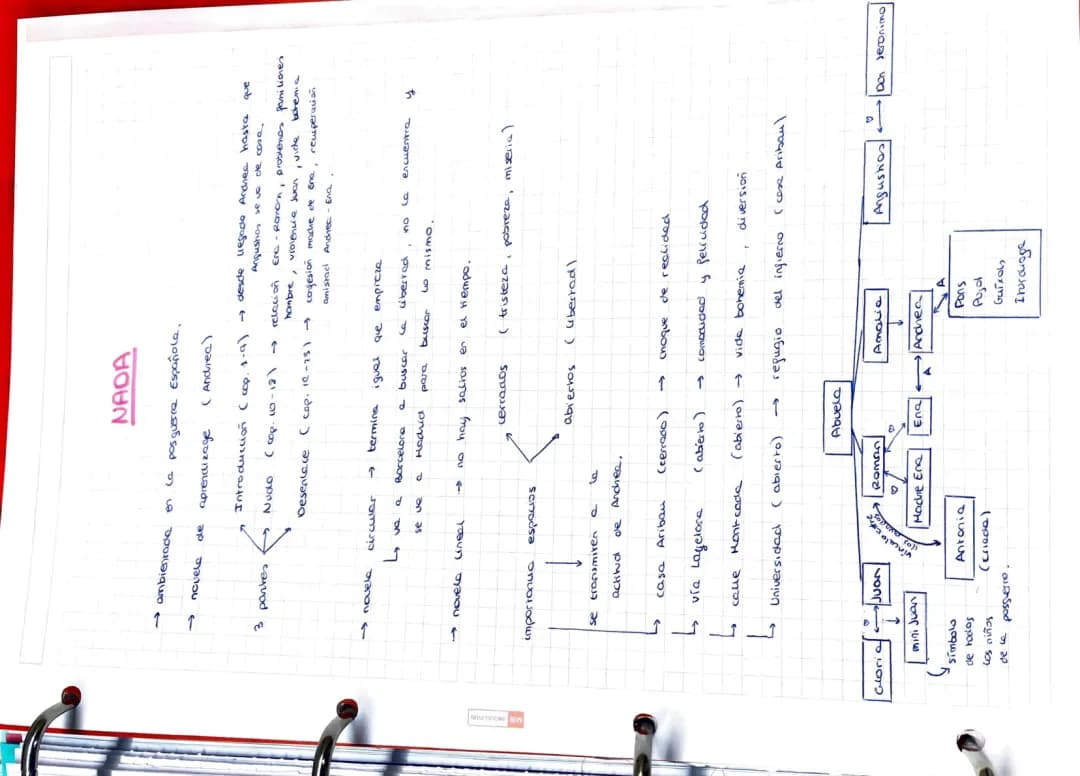 NADA
→ ambientada en la posguerra Española.
→ novela de aprendizage (Andrea)
3 partes
→ Introducción (cap. 1-9) → desde llegada Andrea hasta que
Angustias se va de casa.
→ Nudo (cap. 10-18) → relación Ena-Román, problemas familiares
hambre, violencia Juan, vida bohemia
Desenlace (cap. 1 -25) → confesión madre de ena, recuperación
amistad Andrea-Ena.
→ novela circular → termina igual que empieza
↳ va a Barcelona a buscar la libertad, no la encuentra y
se va a Madrid para buscar lo mismo.
→ novela lineal → no hay saltos en el tiempo.
importancia espacios
cerrados (tristeza, pobreza, miseria)
abiertos (libertad)
se transmiten a la
actitud de Andrea.
↳ casa Aribau (cerrado) → choque de realidad
↳ vía Layetana (abierto) → comodidad y felicidad
↳ calle Montcada (abierto) → vida bohemia, diversión
↳ Universidad (abierto) → refugio del infierno (casa Aribau)
Abuela
Gloria ↔ Juan Román Amalia Angustias ↔ Don Jeronimo
mini Juan Madre Ena Ena ↔ Andrea
A A
símbolo
de todos
los niños
de la posguerra.
Antonia
(criada)
Pons
Pujol
Guíxols
Iturdiaga